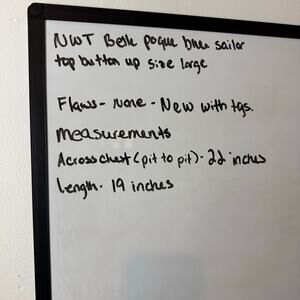 NWT Belle poque blue sailor
top button up size large
Flaws- None - New with tgs.
measurements
Across chest (pit to pit)- 22 inches
Length- 19 inches